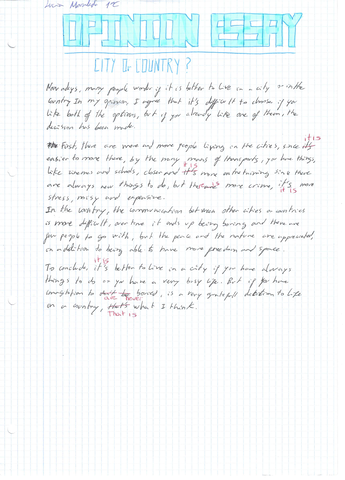 OPINION ESSAY
CITY OR COUNTRY?
Nowadays, many people wonder if it is better to live in a city or in the
country. In my opinion, I agree that it's difficult to choose if you
like both of the options, but if you already like one of them, the
decision has been made.
it is
First, there are more and more people living in the cities, since it's
easier to move there, by the many means of transports, you have things,
it is
like cinemas and schools, closer and it's more entertaining since there
are always new things to do, but there's more crime, it's more
it is
stress, noisy and expensive.
In the country, the communication between other cities or countries
is more difficult, over time it ends up being boring and there are
few people to go with, but the peace and the nature are appreciated,
in addition to being able to have more freedom and space.
it is
To conclude, it's better to live in a city if you have always
things to do or you have a very busy life. But if you have
to boared, is a very gratefull to life
on a country, that's what I think.
That is